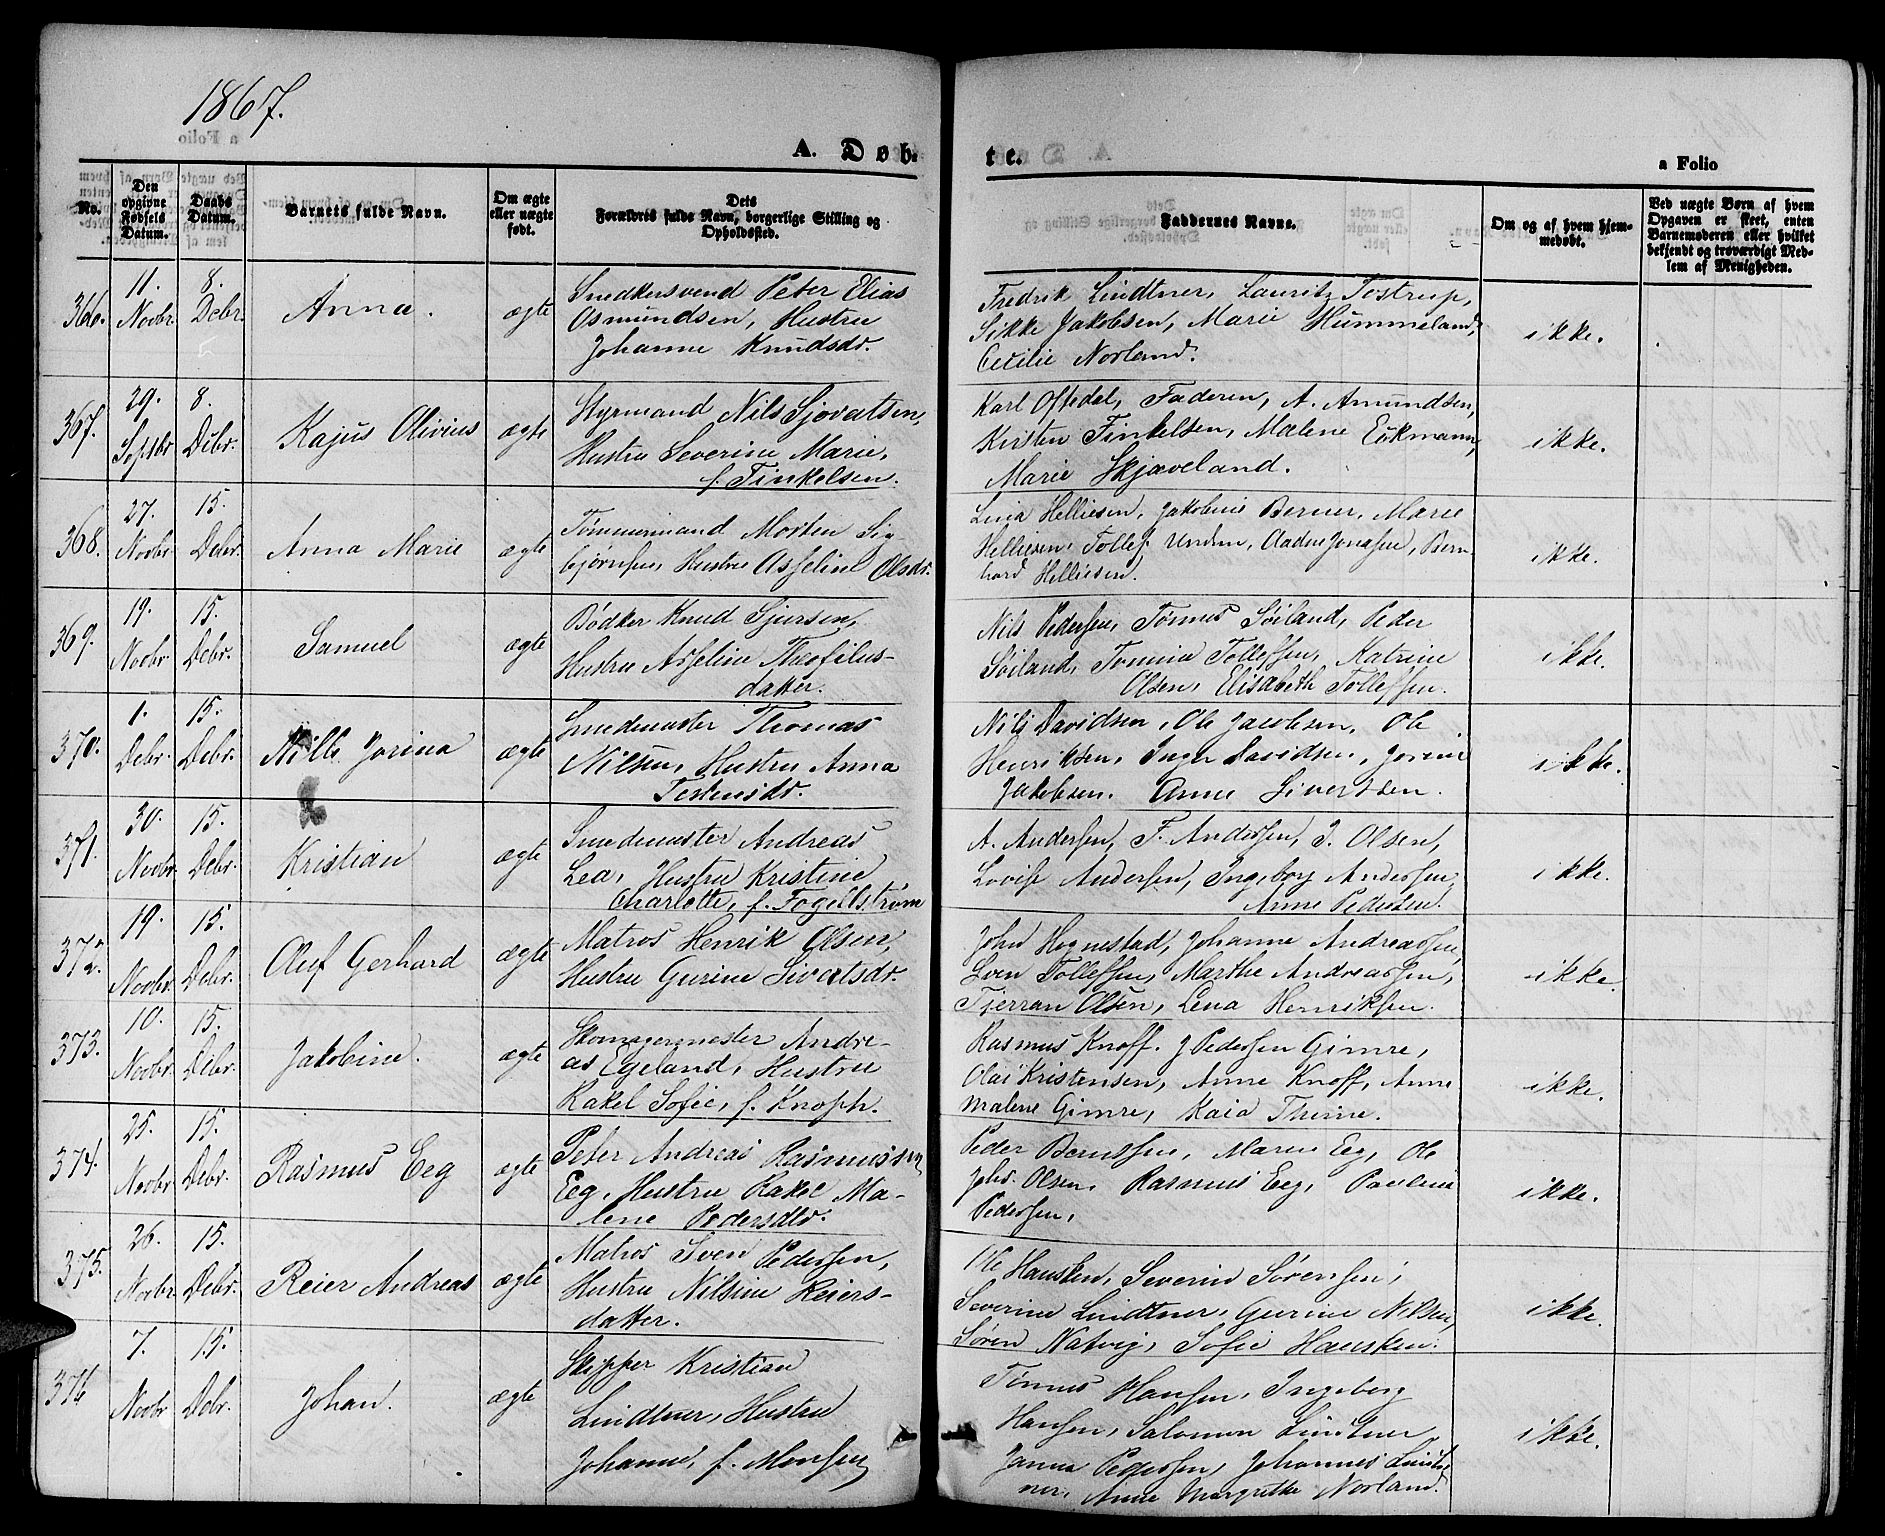 1867.
A. Døb-
te.
a Folio
No.
Den opgivne Fødsels Datum.
Daabs Datum.
Barnets fulde Navn.
Om ægte eller uægte født.
Dets Forældres fulde Navn, borgerlige Stilling og Opholdssted.
Faddernes Navne.
Om og af hvem hjemmedøbt.
Ved uægte Børn af hvem Opgaven er skeet, enten Barnemoderen eller hvilket bekjendt og troværdigt Medlem af Menigheden.
366. 11. Novbr 8. Debr. Anna. ægte
Snedkersvend Peter Elias
Osmundsen, Hustru
Johanne Knudsdr.
Fredrik Lindtner, Lauritz Tostrup,
Sikke Jakobsen, Marie Hummeland,
Cecilie Norland.
ikke.
367. 29. Septbr 8. Debr. Kajus Olivius ægte
Styrmand Nils Sjovatsen,
Hustru Severine Marie,
f. Finkelsen.
Karl Oftedal, Faderen, A. Amundsen,
Kirsten Finkelsen, Malene Eckmann,
Marie Skjæveland.
ikke.
368. 27. Novbr 15. Debr Anna Marie ægte
Tømmermand Morten Sig-
bjørnsen, Hustru Asseline Olsdr.
Lina Helliesen, Jakobine Berner, Marie
Helliesen, Tollef Undem, Aadne Jonassen, Bern-
hard Helliesen.
ikke.
369. 19. Novbr 15. Debr. Samuel ægte
Bødker Knud Sjursen,
Hustru Asseline Theofilus-
datter.
Nils Pedersen, Tønnes Søiland, Peder
Søiland, Tomina Tollefsen, Katrine
Olsen, Elisabeth Tollefsen.
ikke.
370. 1. Debr. 15. Debr. Nille Jorina ægte
Smedemester Thomas
Nilsen, Hustru Anna
Testensdr.
Nils Davidsen, Ole Jacobsen, Ole
Henriksen, Inger Davidsen, Jorine
Jakobsen. Anne Sivertsen.
ikke.
371. 30. Novbr. 15. Debr. Kristian ægte
Smedemester Andreas
Lea, Hustru Kristine
Charlotte, f. Fogelstrøm
A. Andersen, F. Andersen, J. Olsen,
Lovise Andersen, Ingeborg Andersen,
Anne Pedersen.
ikke.
372. 19. Novbr. 15. Debr. Oluf Gerhard ægte
Matros Henrik Olsen,
Hustru Gurine Sivertsdr.
John Hognestad, Johanne Andreassen,
Sven Tollefsen, Marthe Andreassen,
Tjerran Olsen, Lena Henriksen.
ikke.
373. 10. Novbr. 15. Debr. Jakobine. ægte
Skomagermester Andre-
as Egeland, Hustru
Rakel Sofie, f. Knoph.
Rasmus Knoff. J Pedersen Gimre,
Olai Kristensen, Anne Knoff, Anne
Malene Gimre, Kaia Thime.
ikke.
374. 25. Novbr 15. Debr. Rasmus Eeg ægte
Peter Andreas Rasmussen
Eeg, Hustru Rakel Ma-
lene Pedersdtr.
Peder Berntsen, Maren Eeg, Ole
Johs. Olsen, Rasmus Eeg, Pauline
Pedersen,
ikke.
375. 26. Novbr 15. Debr. Reier Andreas ægte
Matros Sven Pedersen,
Hustru Nilsine Reiers-
datter.
Ole Hausken, Severin Sørensen,
Severine Lindtner, Gurine Nilsen,
Søren Natvig, Sofie Hausken.
ikke.
376 7. Novbr 15. Debr. Johan. ægte
Skipper Kristian
Lindtner, Hustru
Johanne, f. Monsen
Tønnes Hansen, Ingeborg
Hansen, Salomon Lindtner
Janna Pedersen, Johannes Lindt-
ner, Anne Margrethe Norland.
ikke.